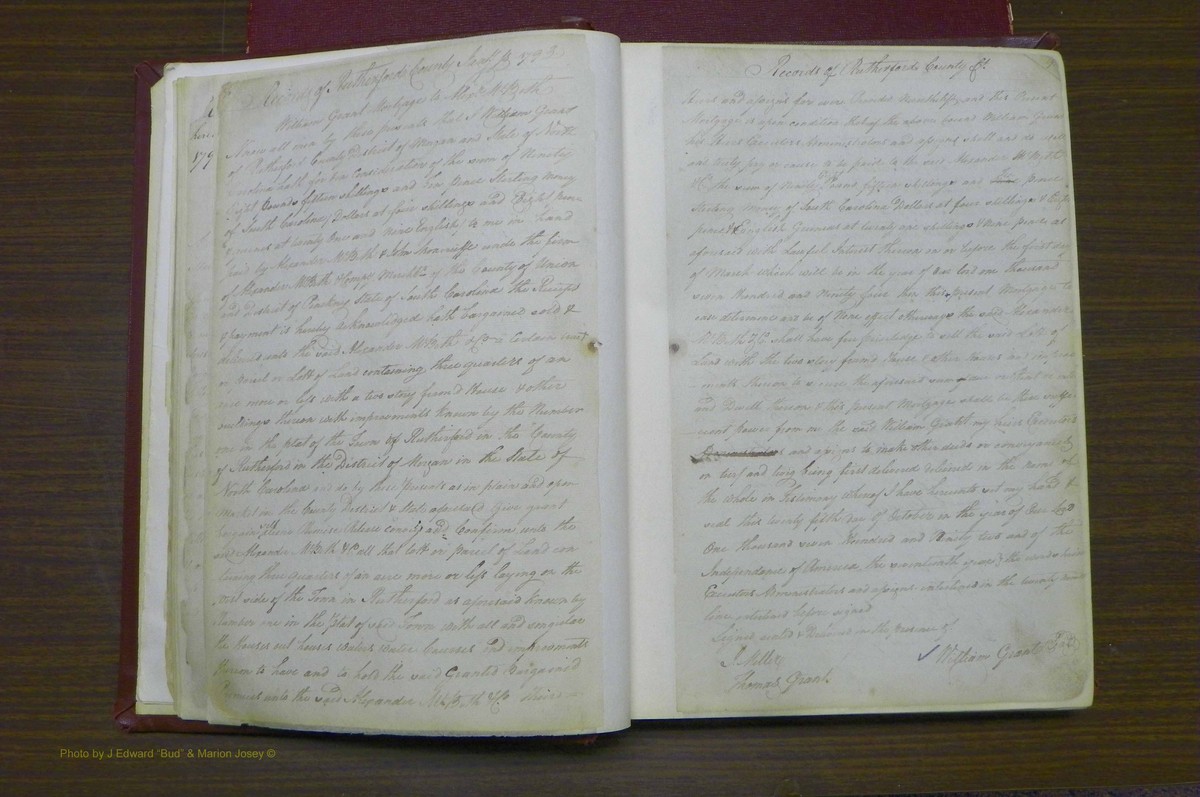 Records of Rutherford County Sept. 1793
William Grant Mortgage to Alexr McBeth
Know all men by these presents that I William Grant
of Rutherford County District of Morgan and State of North
Carolina hath for the Consideration of the sum of Ninety
Eight Pounds fifteen shillings and Ten Pence Sterling money
of South Carolina, Dollars at four shillings and Eight pence
Guineas at twenty One and Nine English, to me in hand
paid by Alexander McBeth & John under the firm
of Alexander McBeth & Compy Merchts of the County of Union
and district of Pinckney State of South Carolina the Receipt
& payment is hereby acknowledged hath bargained sold &
delivered unto the said Alexander McBeth & Co a Certain tract
or parcel or Lott of Land containing three quarters of an
acre more or less with a two story fram'd House & other
buildings thereon with improvements known by the Number
one in the plat of the Town of Rutherford in the County
of Rutherford in the District of Morgan in the State of
North Carolina and do by these presents as in plain and open
Market in the County District & State aforesaid Give grant
bargain Alien Remise Release convey and Confirm unto the
said Alexander McBeth & Co all that lott or parcel of Land con
taining three quarters of an acre more or less laying on the
west side of the Town in Rutherford as aforesaid known by
Number one in the plat of said Town with all and singular
the Houses out houses waters water Courses and improvements
thereon to have and to hold the said Granted & Bargain'd
Premises unto the said Alexander McBeth & Co their
Records of Rutherford County &c.
Heirs and assigns for ever Provided Nevertheless and this Present
Mortgage is upon condition that if the above bound William Grant
his Heirs Executors Administrators and assigns shall and do well
and truly pay or cause to be paid to the said Alexander McBeth
& Co the sum of Ninety Pounds fifteen shillings and pence
Sterling money of South Carolina Dollars at four shillings & Eight
pence & English Guineas at twenty one shillings & Nine pence as
aforesaid with lawful Interest thereon on or before the first day
of March which will be in the year of our Lord one thousand
seven Hundred and Ninety five then this present Mortgage to
cease determine and be of None effect otherways the said Alexander
McBeth & Co shall have free priviledge to sell the said Lott of
Land with the two story fram'd House & other houses and improve
-ments thereon to secure the aforesaid sum
and Dwell thereon & this present Mortgage shall be their suffi
cient power from me the said William Grant my heirs Executors
and assigns to make other deeds or conveyances
or and being first delivered in the name of
the whole in Testimony whereof I have hereunto set my hand &
seal this twenty fifth day of October in the year of Our Lord
One thousand seven Hundred and Ninety two and of the
Independance of America the seventeenth year, the words heirs
Executors Administrators and assigns interlined in the twenty
line interlined before signed
Signed sealed & Delivered in the presence of
J. Miller
William Grant Seal
Thomas Grant
Photo by J Edward "Bud" & Marion Josey ©